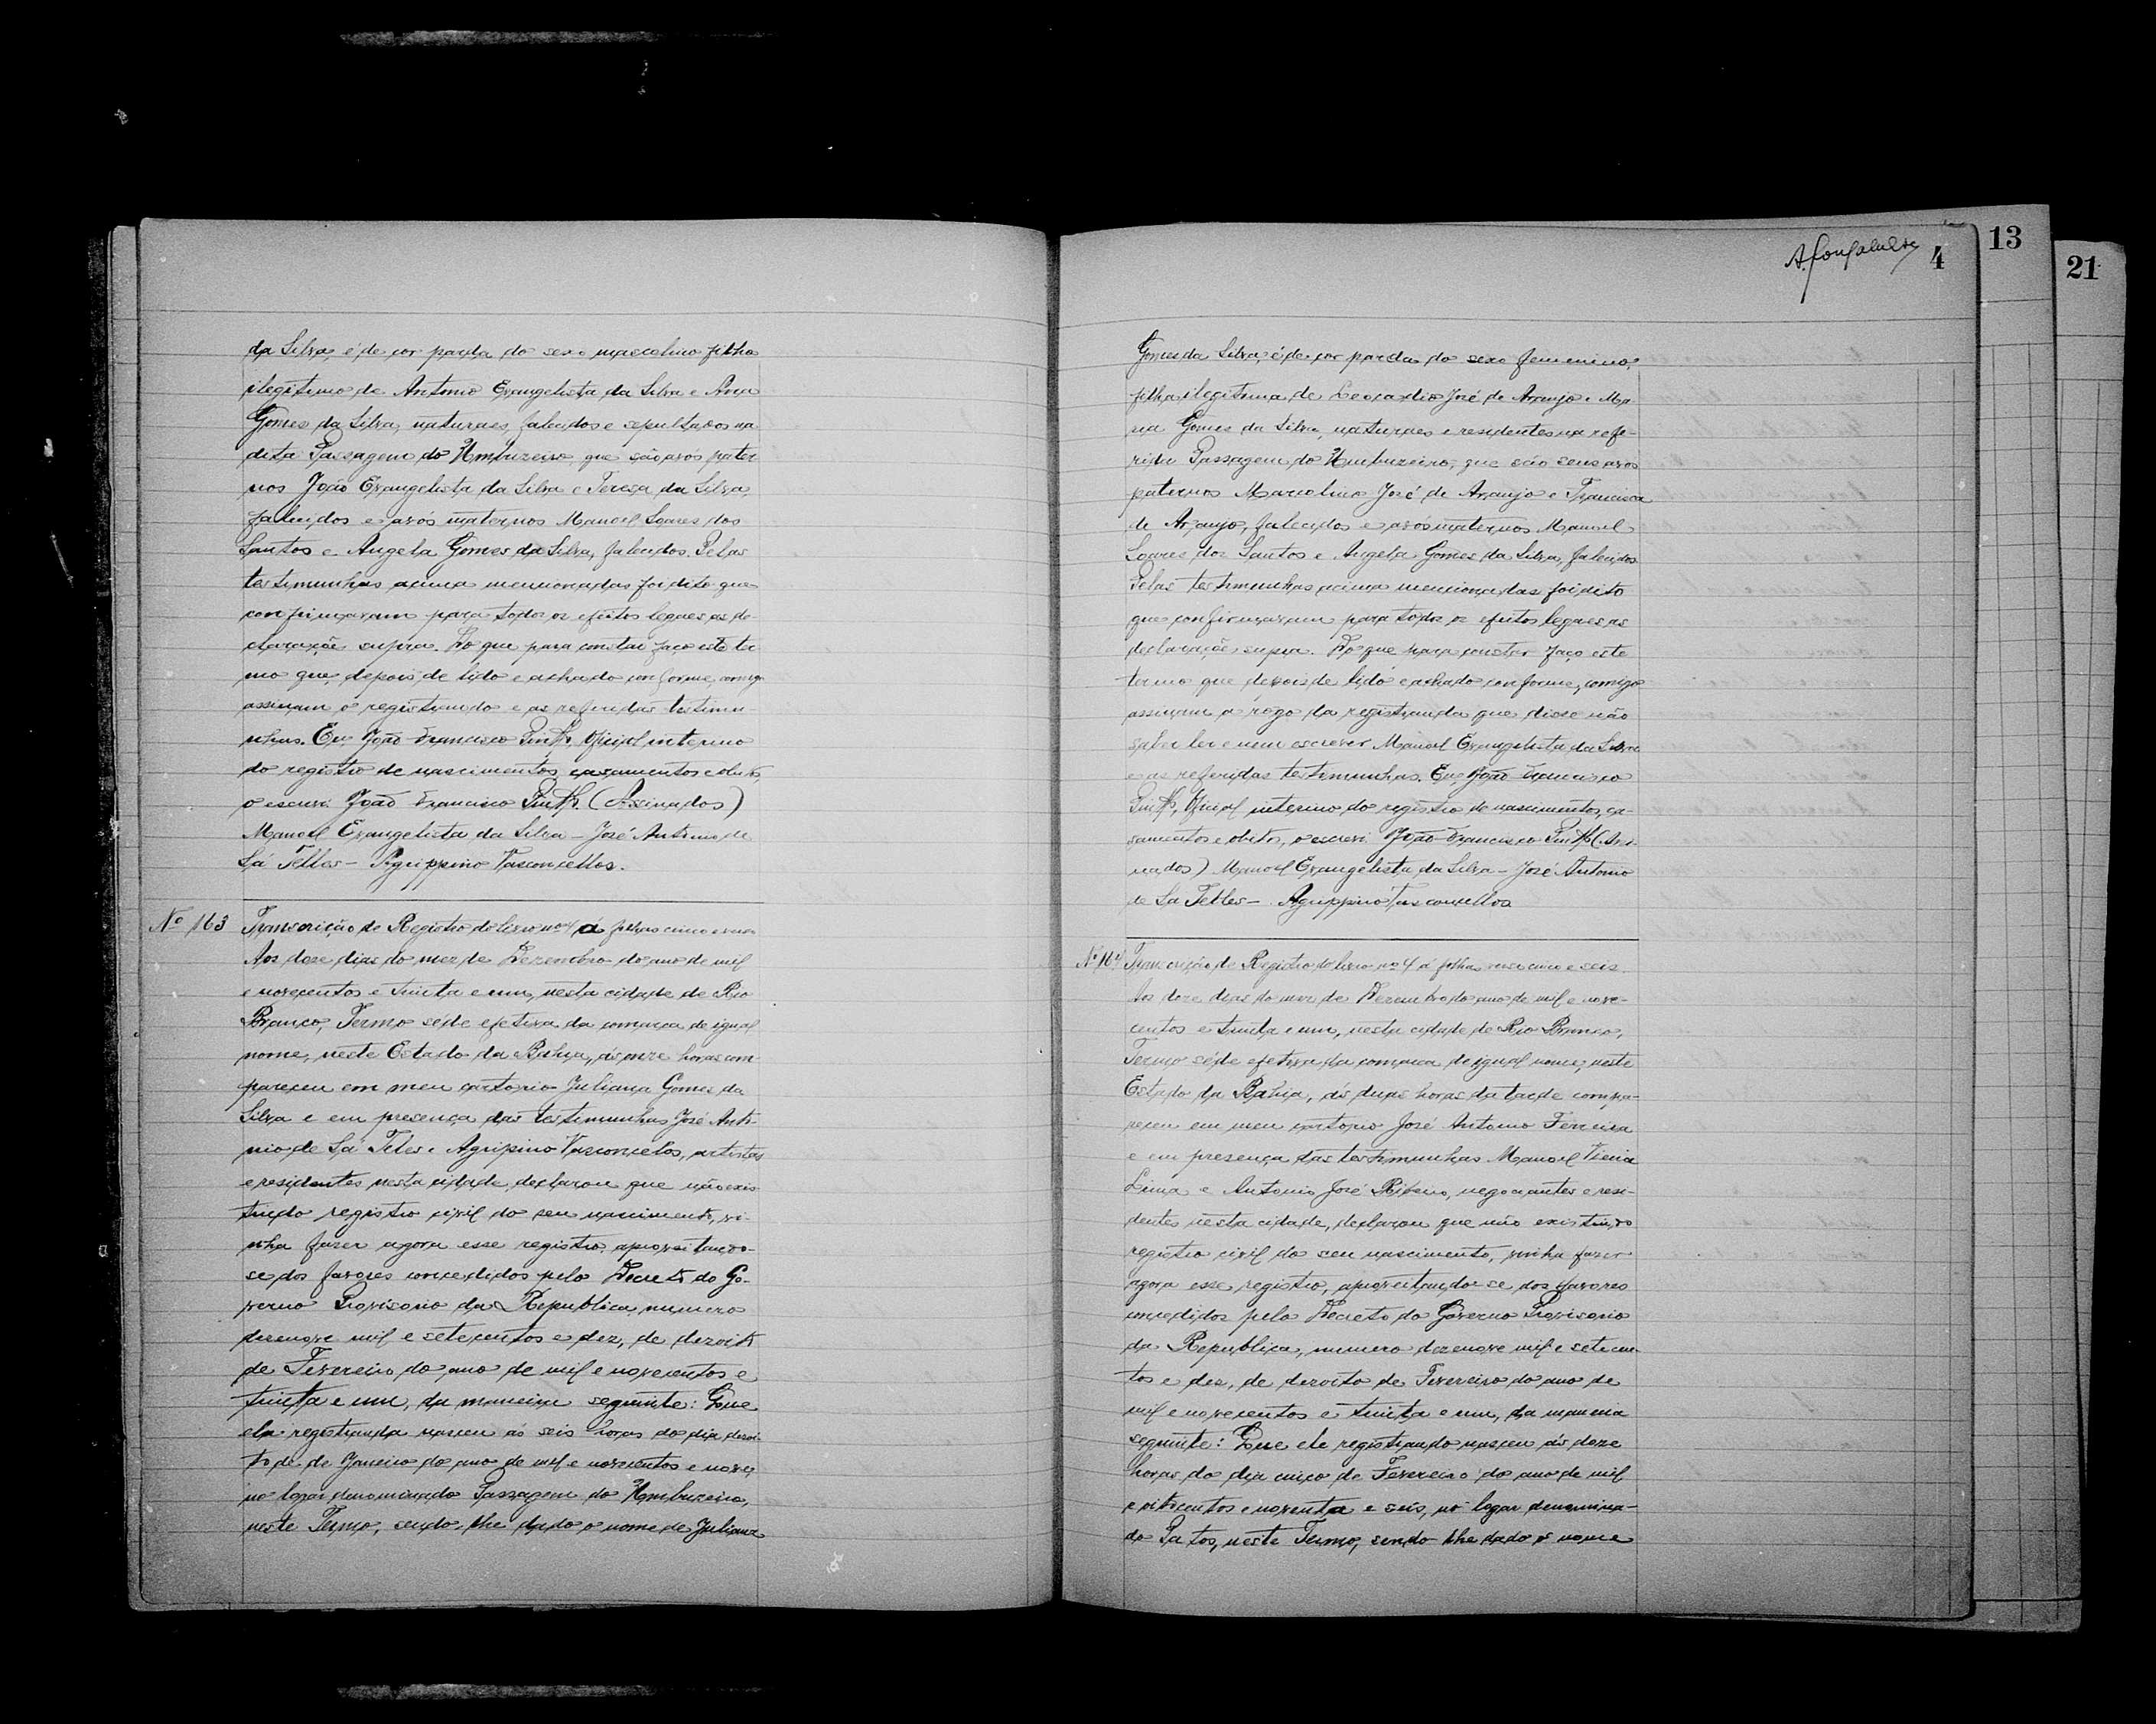 da Silva, é de cor parda do sexo masculino filho
ilegitimo de Antonio Evangelista da Silva e Ana
Gomes da Silva, naturaes, falecidos e sepultados na
dita Passagem do Umbuzeiro, que são avós pater
nos João Evangelista da Silva e Teresa da Silva,
falecidos e avós maternos Manoel Soares dos
Santos e Angela Gomes da Silva, falecidos. Pelas
testimunhas acima mencionadas foi dito que
confirmavam para todos os efeitos legaes, as de-
claração supra. Do que para constar faco este ter
mo que, depois de lido e achado conforme, comigo
assinam o registrando e as referidas testimu-
nhas. Eu, João Francisco Official interino
do registro de nascimentos, casamentos e obitos,
o escrevi João Francisco (Assinados)
Manoel Evangelista da Silva - José Antonio de
Sá Telles - Agrippino Vasconcellos.
No 163 Transcrição do Registro do livro no 4 á folhas cinco e verso
Aos doze dias do mez de Dezembro do ano de mil
e novecentos e trinta e um, nesta cidade de Rio
Branco, Termo séde efetiva da comarca de igual
nome, neste Estado da Bahia, ás onze horas com-
pareceu em meu cartorio Juliana Gomes da
Silva e em presença das testimunhas José Anto-
nio de Sá Teles e Agripino Vasconcelos, artistas
e residentes nesta cidade, declarou que não exis-
tindo registro civil do seu nascimento, vi-
nha fazer agora esse registro, aproveitando-
se dos favores concedidos pelo Decreto do Go-
verno Provisorio da Republica, numero
dezenove mil e setecentos e dez, de dezoito
de Fevereiro do ano de mil e novecentos e
trinta e um, da maneira seguinte: Que
ela registranda nasceu ás seis horas do dia dezoi-
to de de Janeiro do ano de mil e novecentos e nove,
no logar denominado Passagem do Umbuzeiro,
neste Termo, sendo-lhe dado o nome de Juliana
A. Gonçalves 4
13
21
Gomes da Silva, é de cor parda do sexo femenino,
filha ilegitima de Leocadio José de Araujo e Ma
ria Gomes da Silva, naturaes e residentes na refe-
rida Passagem do Umbuzeiro, que são seus avos
paternos Marcolino José de Araujo e Francisca
de Araujo, falecidos e avós maternos Manoel
Soares dos Santos e Angela Gomes da Silva, falecidos.
Pelas testimunhas acima mencionadas foi dito
que confirmavam para todos os efeitos legaes as
declaração supra. Do que para constar faço este
termo que depois de lido e achado conforme, comigo
assinam a rogo da registranda que disse não
saber ler e nem escrever Manoel Evangelista da Silva
e as referidas testimunhas. Eu, João Francisco
Official interino do registro de nascimentos, ca-
samentos e obitos, o escrevi João Francisco (Assi-
nados) Manoel Evangelista da Silva - José Antonio
de Sa Telles - Agrippino Vasconcellos
No 164 Transcrição do Registro do livro no 4 á folhas verso cinco e seis.
Aos doze dias do mez de Dezembro do ano de mil e nove-
centos e trinta e um, nesta cidade de Rio Branco,
Termo séde efetiva da comarca de igual nome, neste
Estado da Bahia, ás duas horas da tarde compa-
receu em meu cartorio José Antonio Ferreira
e em presença das testimunhas Manoel Vieira
Lima e Antonio José Ribeiro, negociantes e resi-
dentes nesta cidade, declarou que não existindo
registro civil do seu nascimento, vinha fazer
agora esse registro, aproveitando-se dos favores
concedidos pelo Decreto do Governo Provisorio
da Republica, numero dezenove mil e setecen-
tos e dez, de dezoito de Fevereiro do ano de
mil e novecentos e trinta e um, da maneira
seguinte: Que ele registrando nasceu ás doze
horas do dia cinco de Fevereiro do ano de mil
e oitocentos e noventa e seis, no logar denomina-
do Patos, neste Termo, sendo-lhe dado o nome